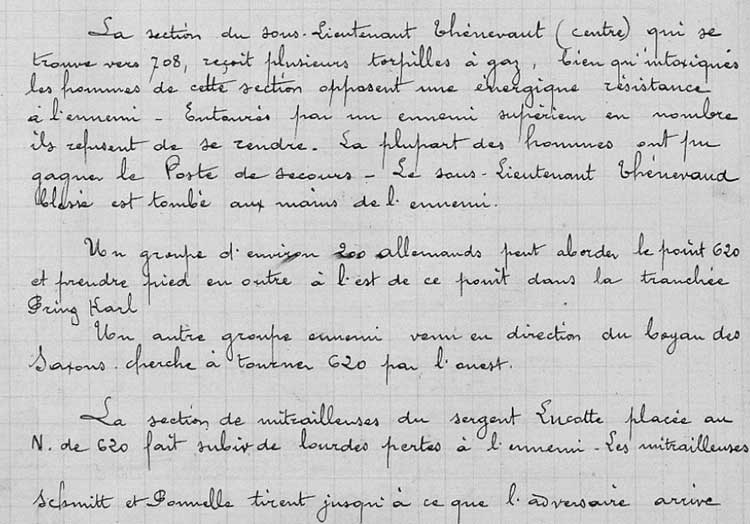 La section du sous-Lieutenant Thénevaut (centre) qui se
trouve vers 708, reçoit plusieurs torpilles à gaz, bien qu'intoxiqués
les hommes de cette section opposent une énergique résistance
à l'ennemi - Entourés par un ennemi supérieur en nombre
ils refusent de se rendre. La plupart des hommes ont pu
gagner le Poste de secours - Le sous-Lieutenant Thénevaud
blessé est tombé aux mains de l'ennemi.
Un groupe d'environ 200 allemands peut aborder le point 620
et prendre pied en outre à l'est de ce point dans la tranchée
Pring Karl
Un autre groupe ennemi venu en direction du boyau des
Saxons cherche à tourner 620 par l'ouest.
La section de mitrailleuses du sergent Lucotte placée au
N. de 620 fait subir de lourdes pertes à l'ennemi - Les mitrailleuses
Schmitt et Ponnelle tirent jusqu'à ce que l'adversaire arrive